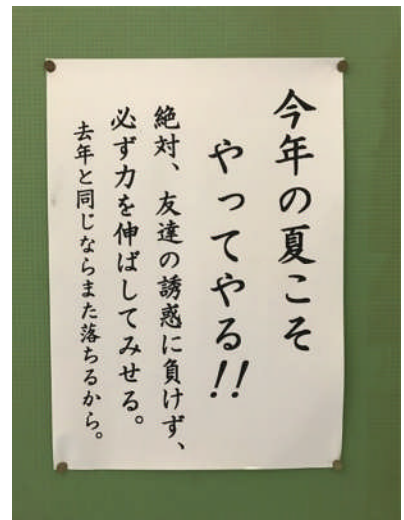 今年の夏こそ
やってやる!!
絶対、友達の誘惑に負けず、
必ず力を伸ばしてみせる。
去年と同じならまた落ちるから。